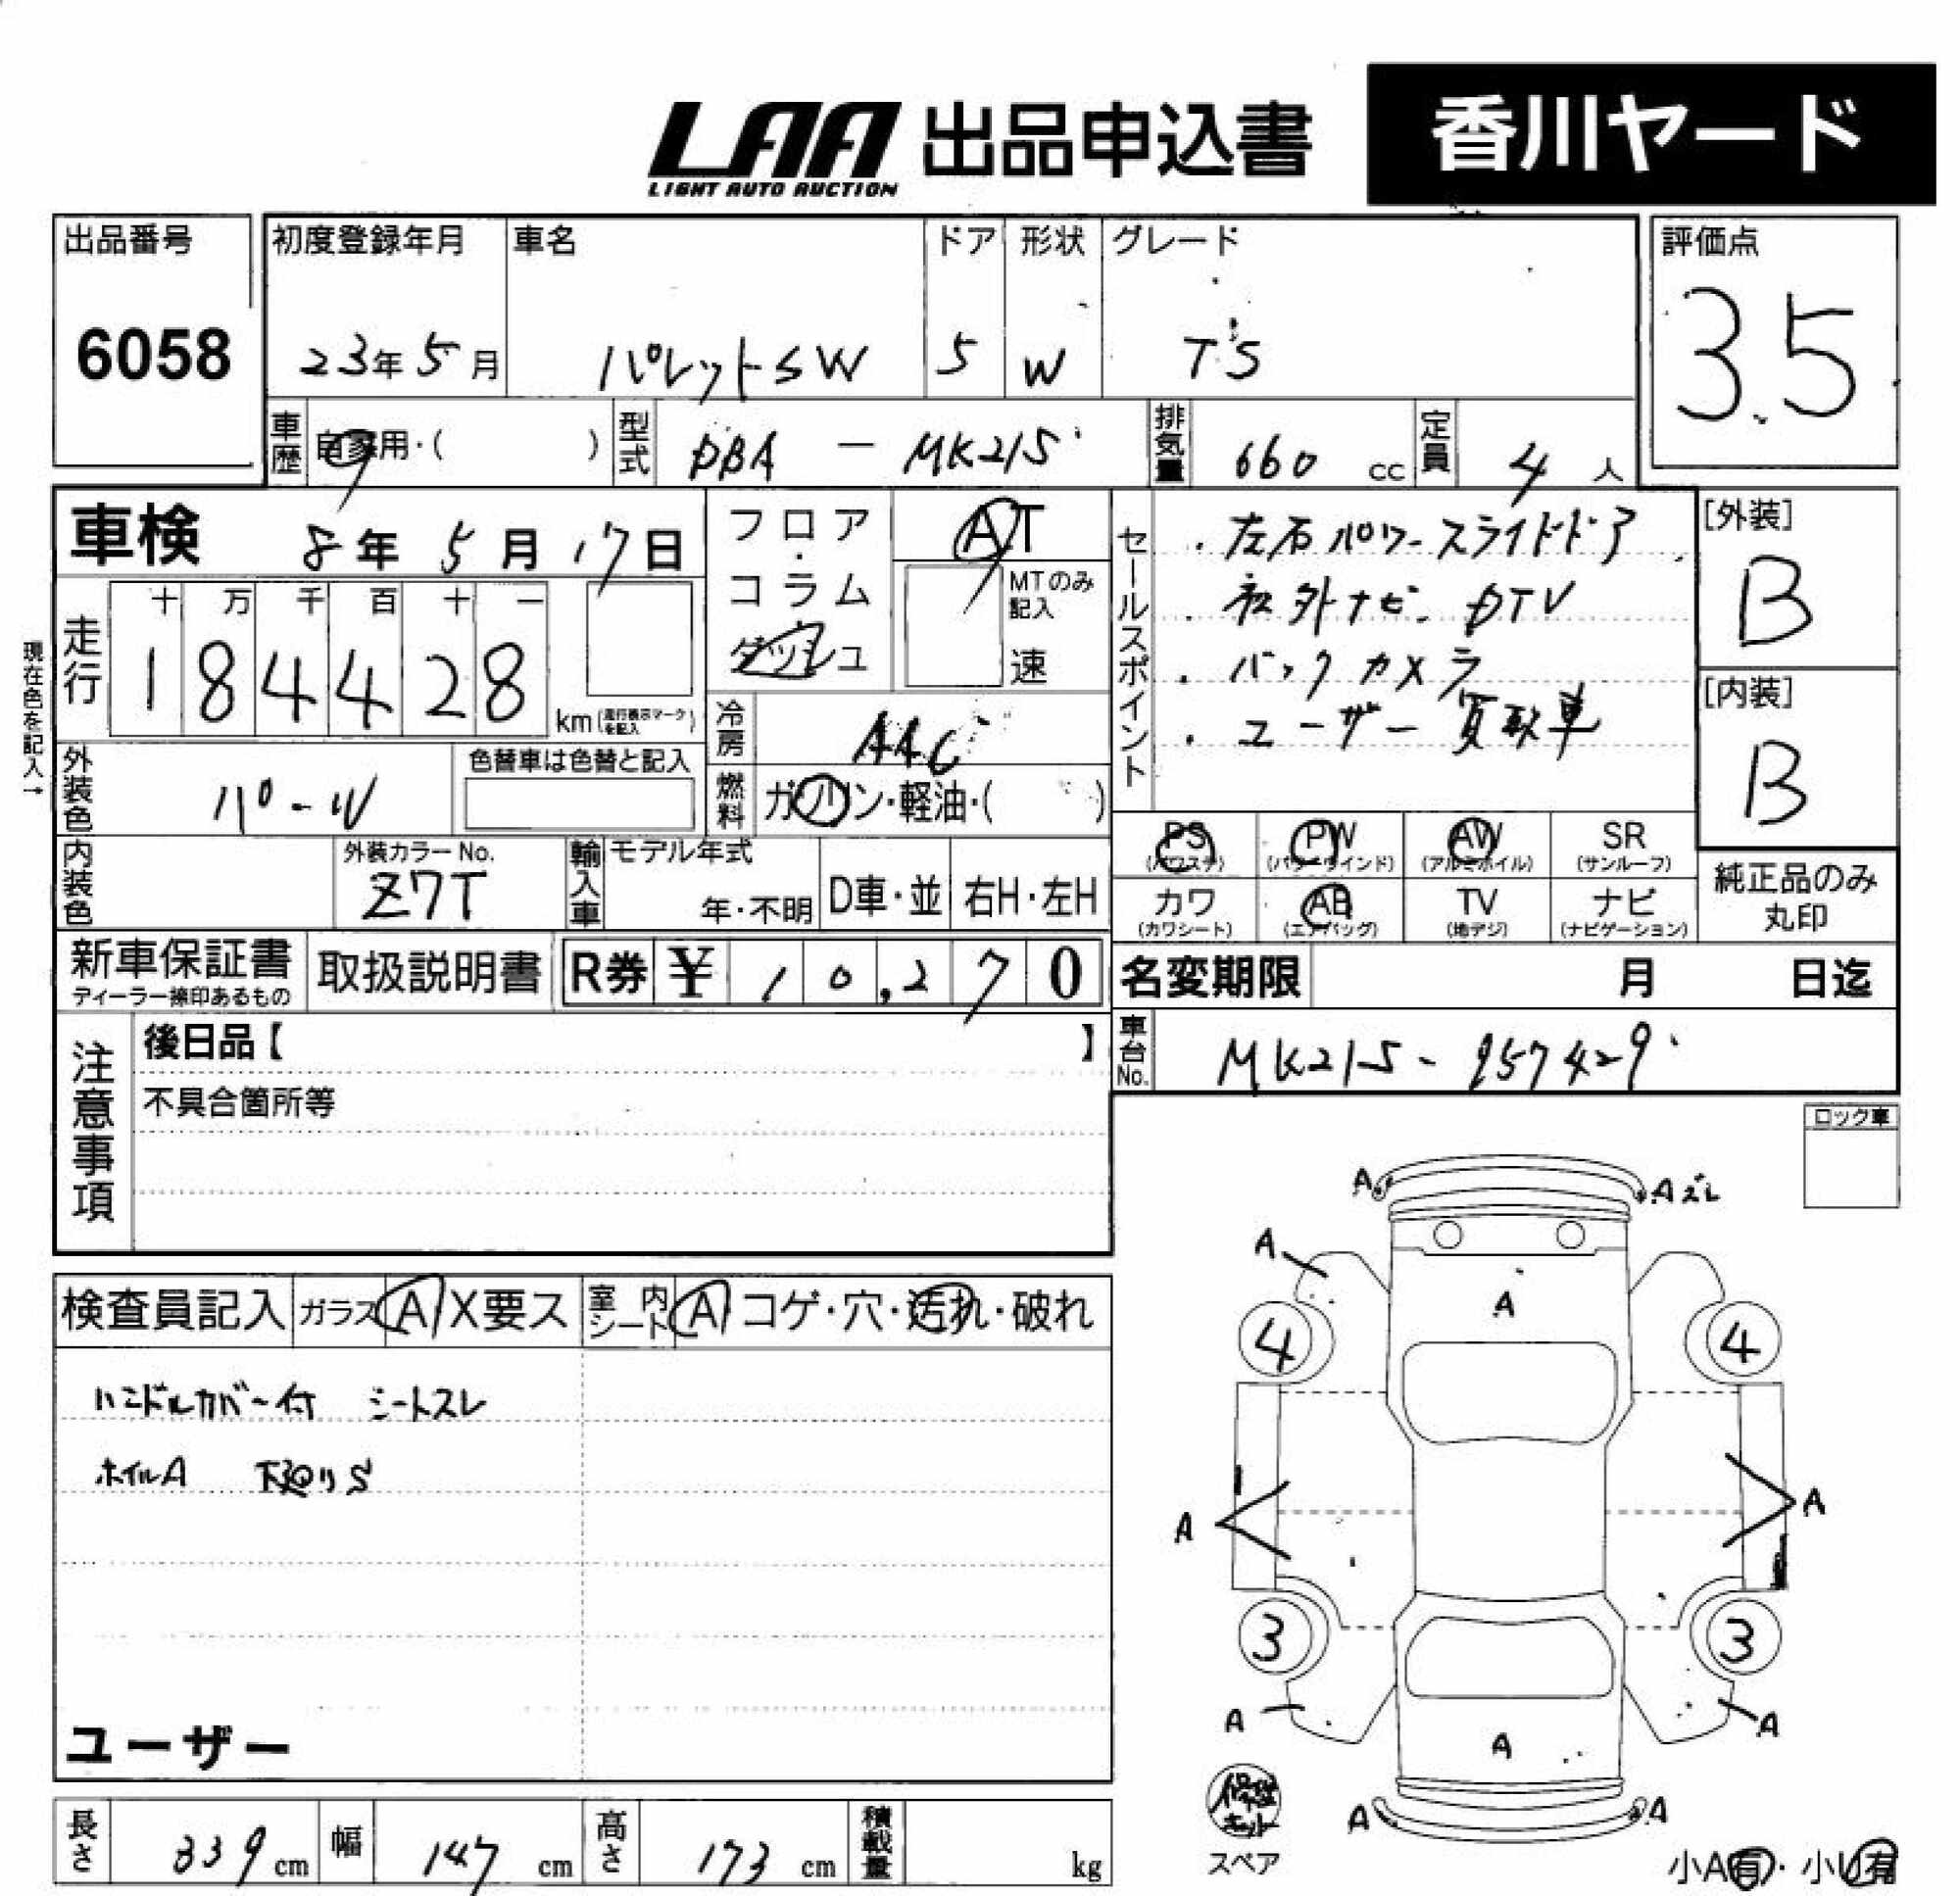 LAA 出品申込書 香川ヤード
LIGHT AUTO AUCTION
出品番号 初度登録年月 車名 ドア 形状 グレード 評価点
6058 23年5月 パレットSW 5 W TS 3.5
車歴 自家用・( ) 型式 DBA - MK21S 排気量 660 cc 定員 4 人
車検 8年 5月 17日
フロア・コラム・ダッシュ
AT
MTのみ記入
速
セールスポイント
・左右パワースライドドア
・社外ナビ DTV
・バックカメラ
・ユーザー買取車
[外装]
B
[内装]
B
現在色を記入→
走行 十 万 千 百 十 一
184428 km(走行表示マークを記入)
冷房 AAC
外装色 パールW 色替車は色替と記入
燃料 ガソリン・軽油・( )
PS (パワステ) PW (パワーウインド) AW (アルミホイル) SR (サンルーフ)
カワ (カワシート) AB (エアバッグ) TV (地デジ) ナビ (ナビゲーション)
純正品のみ丸印
内装色 外装カラーNo. Z7T 輸入車 モデル年式 年・不明 D車・並 右H・左H
新車保証書 ディーラー捺印あるもの 取扱説明書 R券 ¥ 10,270
名変期限 月 日迄
車台No. MK21S-957429
注意事項
後日品【 】
不具合箇所等
ロック車
検査員記入 ガラス A X要ス 室内シート A コゲ・穴・汚れ・破れ
ハンドルカバー付 シートスレ
ホイルA 下廻りS
ユーザー
A A ズレ
A
A
4 4
A A
3 3
A A
A
A A
スペア
小A有・小U有
長さ 339 cm 幅 147 cm 高さ 173 cm 積載量 kg